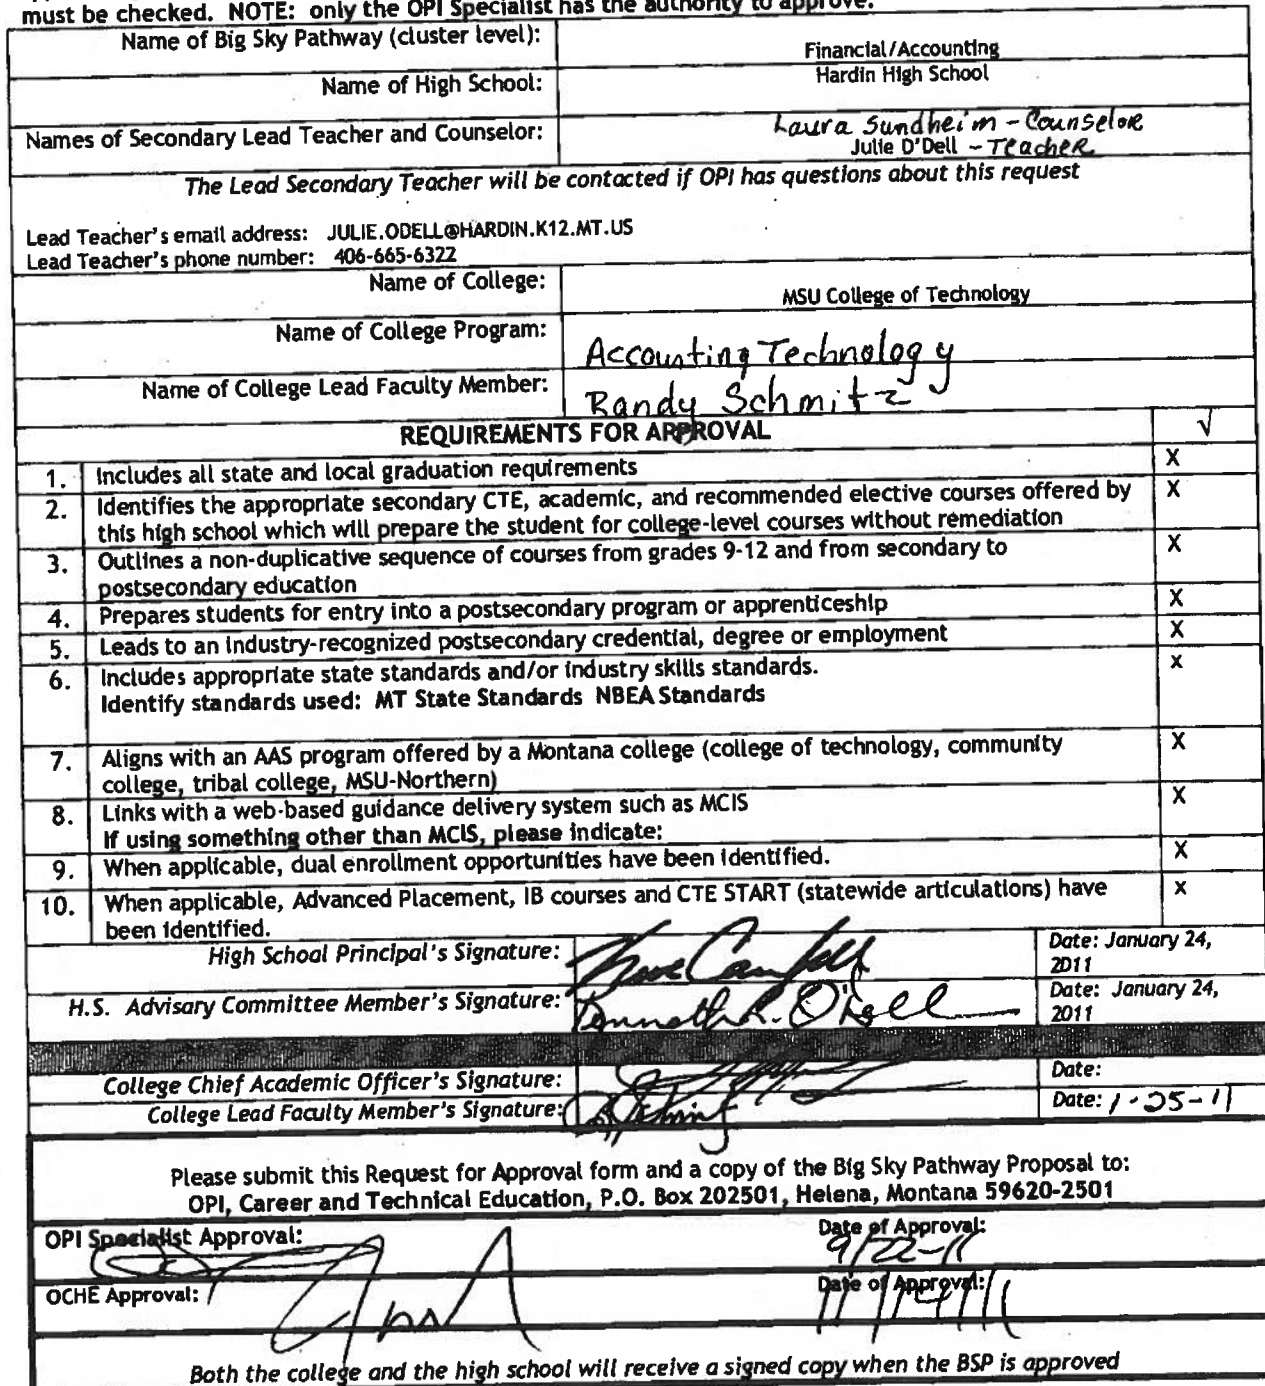 must be checked. NOTE: only the OPI Specialist has the authority to approve.
Name of Big Sky Pathway (cluster level):
Financial/Accounting
Name of High School:
Hardin High School
Names of Secondary Lead Teacher and Counselor:
Laura Sundheim - Counselor
Julie O'Dell - Teacher
The Lead Secondary Teacher will be contacted if OPI has questions about this request
Lead Teacher's email address: JULIE.ODELL@HARDIN.K12.MT.US
Lead Teacher's phone number: 406-665-6322
Name of College:
MSU College of Technology
Name of College Program:
Accounting Technology
Name of College Lead Faculty Member:
Randy Schmitz
REQUIREMENTS FOR APPROVAL √
1. Includes all state and local graduation requirements X
2. Identifies the appropriate secondary CTE, academic, and recommended elective courses offered by X
this high school which will prepare the student for college-level courses without remediation
3. Outlines a non-duplicative sequence of courses from grades 9-12 and from secondary to X
postsecondary education
4. Prepares students for entry into a postsecondary program or apprenticeship X
5. Leads to an industry-recognized postsecondary credential, degree or employment X
6. Includes appropriate state standards and/or industry skills standards. x
Identify standards used: MT State Standards NBEA Standards
7. Aligns with an AAS program offered by a Montana college (college of technology, community X
college, tribal college, MSU-Northern)
8. Links with a web-based guidance delivery system such as MCIS X
If using something other than MCIS, please indicate:
9. When applicable, dual enrollment opportunities have been identified. X
10. When applicable, Advanced Placement, IB courses and CTE START (statewide articulations) have x
been identified.
High School Principal's Signature:
Date: January 24,
2011
H.S. Advisary Committee Member's Signature: Kenneth R. O'Dell
Date: January 24,
2011
College Chief Academic Officer's Signature:
Date:
College Lead Faculty Member's Signature:
Date: 1-25-11
Please submit this Request for Approval form and a copy of the Big Sky Pathway Proposal to:
OPI, Career and Technical Education, P.O. Box 202501, Helena, Montana 59620-2501
OPI Specialist Approval:
Date of Approval:
9/22-11
OCHE Approval:
Date of Approval:
11/14/11
Both the college and the high school will receive a signed copy when the BSP is approved